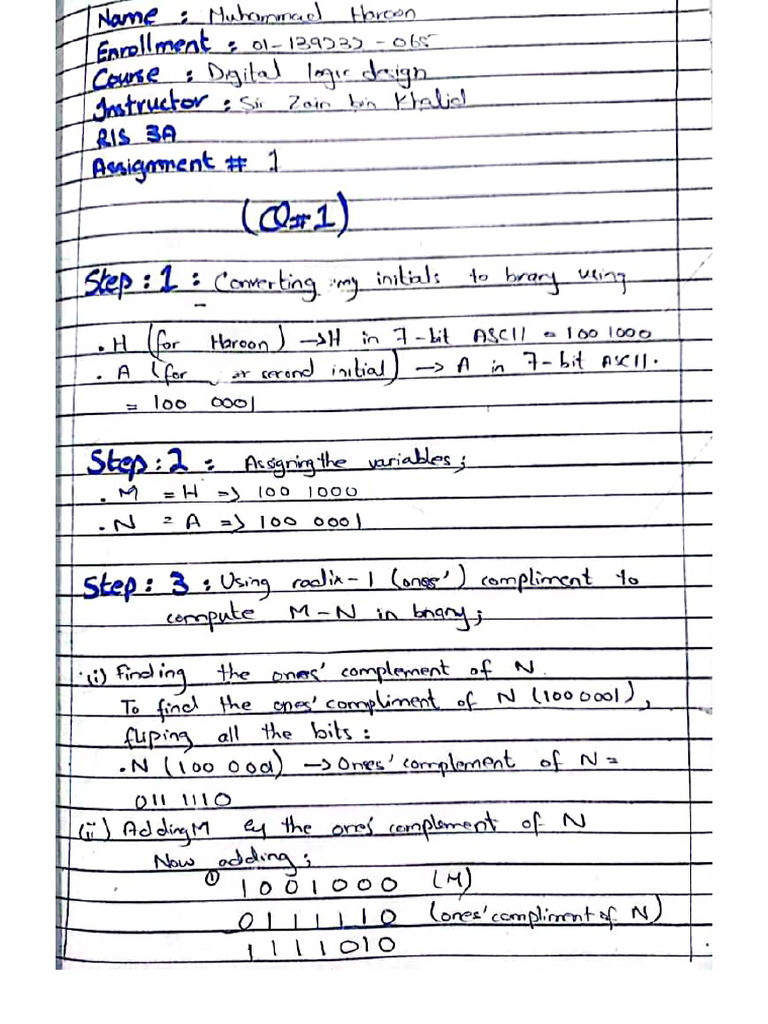 Name : Muhammad Haroon
Enrollment : 01-139232-065
Course : Digital logic design
Instructor : Sir Zain bin Khalid
BIS 3A
Assignment # 1
(Q#1)
Step : 1 : Converting my initials to binary using
. H (for Haroon) → H in 7-bit ASCII = 100 1000
. A (for or second initial) → A in 7-bit ASCII.
= 100 0001
Step : 2 : Assigning the variables;
. M = H => 100 1000
. N = A => 100 0001
Step : 3 : Using radix-1 (ones') compliment to
compute M-N in binary;
(i) Finding the ones' complement of N.
To find the ones' compliment of N (100 0001),
fliping all the bits :
. N (100 0001) → Ones' complement of N =
011 1110
(ii) Adding M the ones' complement of N
Now adding;
① 1001000 (M)
0111110 (ones' compliment of N)
1111010